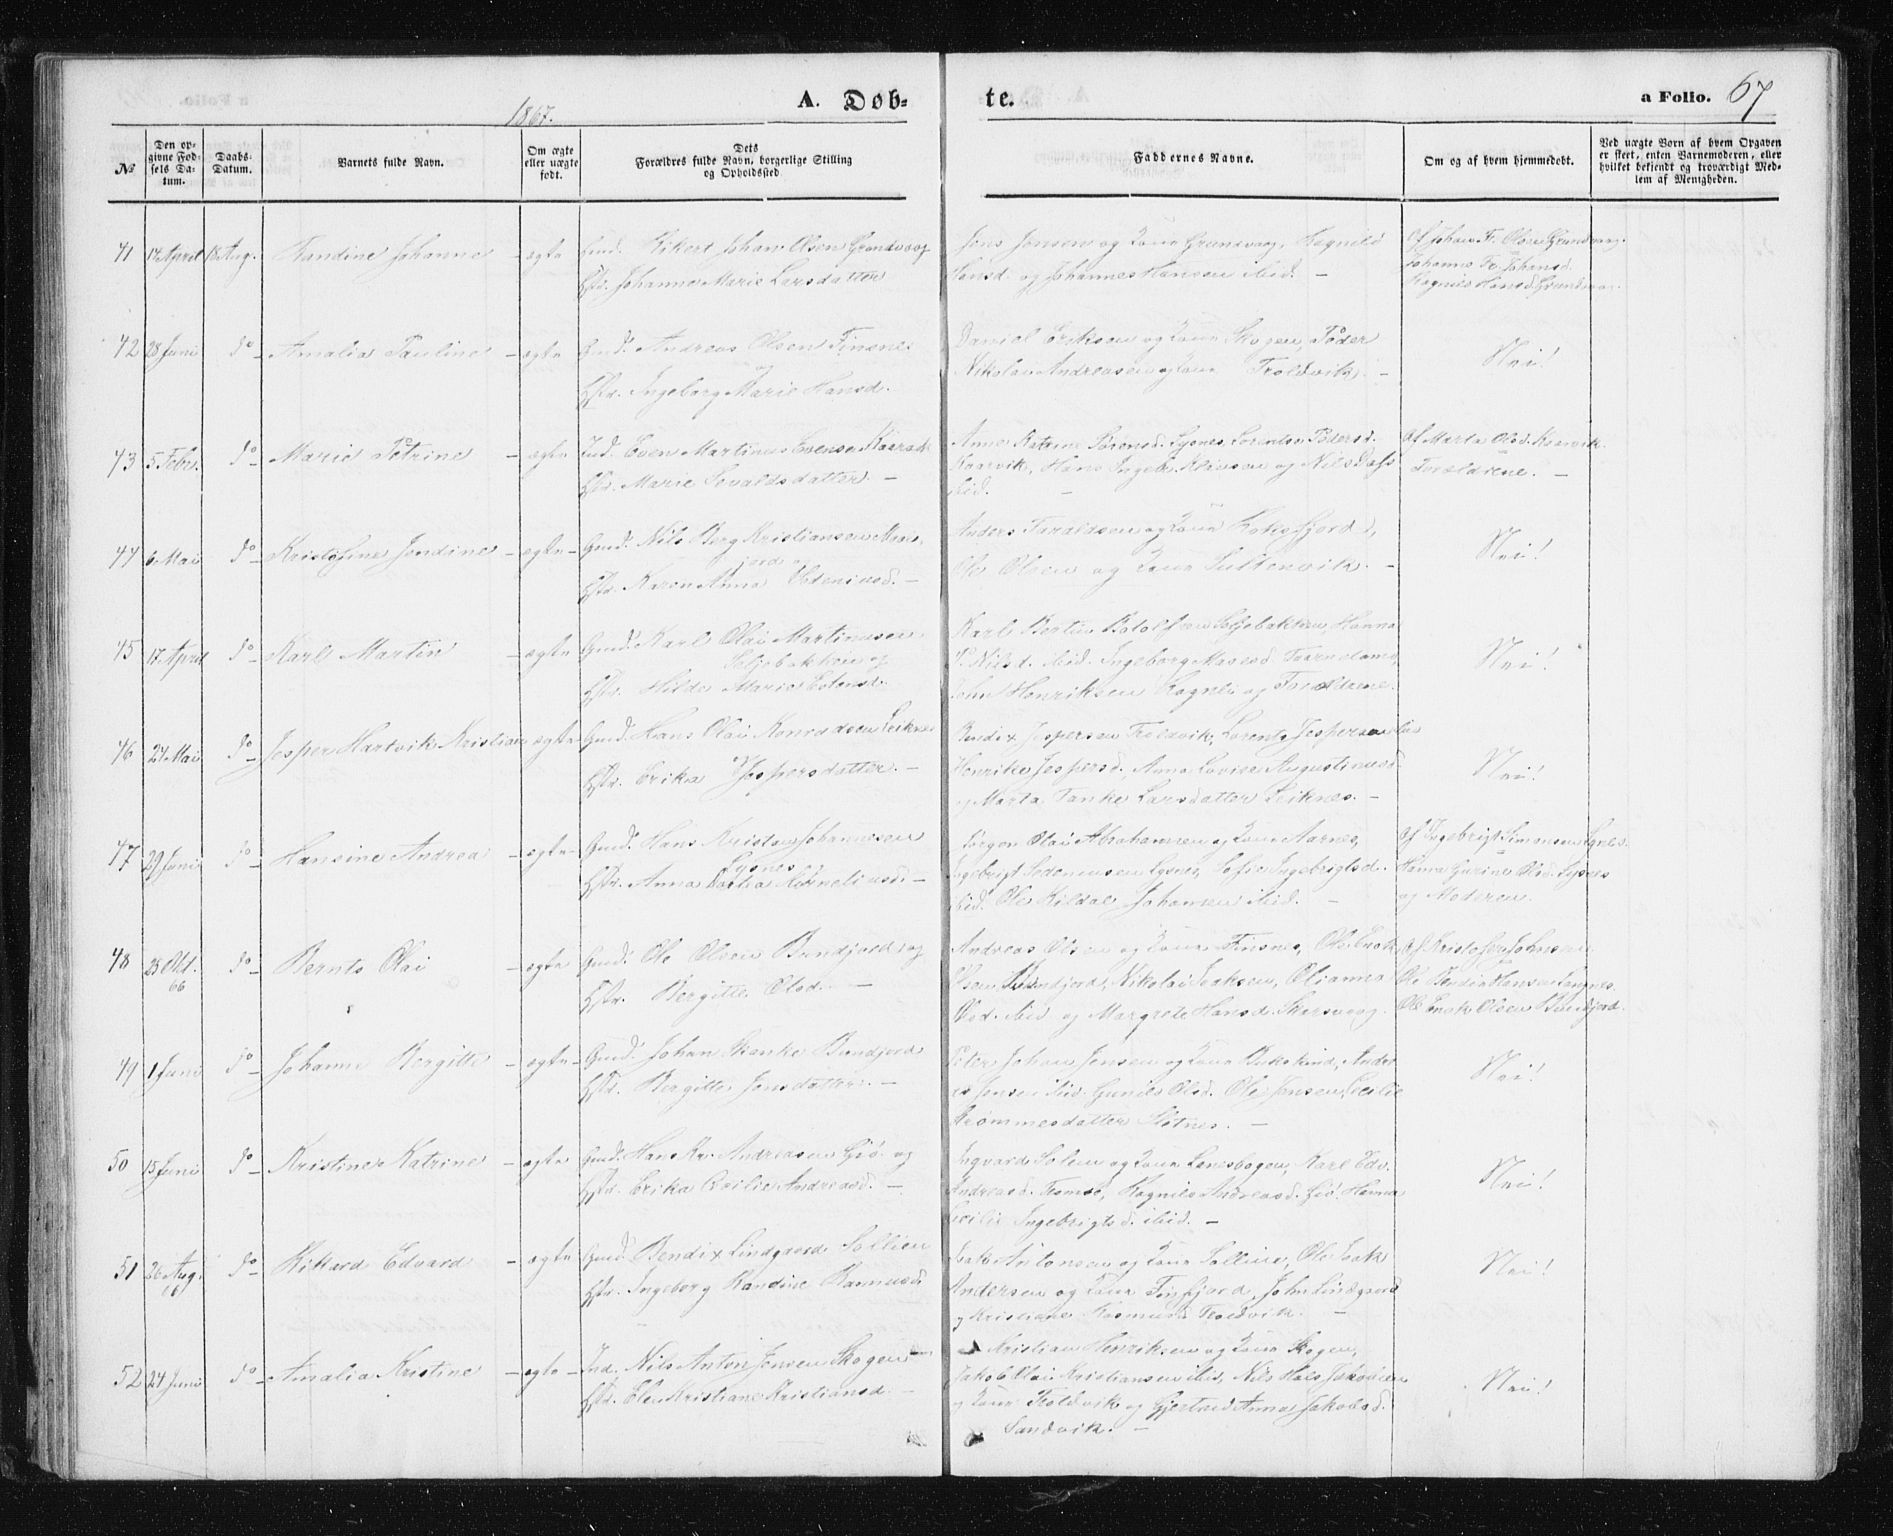 1867.
A. Døb-
te.
a Folio. 67
№
Den op-
givne Fød-
sels Da-
tum.
Daabs-
Datum.
Barnets fulde Navn.
Om ægte
eller uægte
født.
Dets
Forældres fulde Navn, borgerlige Stilling
og Opholdssted
Faddernes Navne.
Om og af hvem hjemmedøbt.
Ved uægte Børn af hvem Opgaven
er skeet, enten Barnemoderen, eller
hvilket bekjendt og troværdigt Med-
lem af Menigheden.
41 17 April 18 Aug. Nandine Johanne – ægte Gmd. Rikert Johan Olsen Grundvaag
Hstr. Johanna Marie Larsdatter
Jens Jensen og Kone Grundvaag, Ragnild
Hansd. og Johannes Hansen ibid. –
Af Johan Fr. Olsen Grundvaag.
Johanna Fr. Johansd.
Ragnild Hansd. Grundvaag.
42 28 Juni do – Amalia Pauline – ægte Gmd. Andreas Olsen Finsnes
og
Hstr. Ingeborg Marie Hansd.
Daniel Eriksen og Kone Skogen, Peder
Nikolai Andreasen og Kone Troldvik. –
Nei!
43 5 Febr. do – Marie Petrine – ægte Ind. Even Martinus Evensen Kaarvik
Hstr. Marie Sevaldsdatter. –
Anne Katrine Sørensd. Lysnes, Lorents Pedersd.
Kaarvik, Hans Ingebr. Klausen og Nils Dass
ibid. –
Af Marta Olsd. Kaarvik.
Forældrene. –
44 6 Mai do – Kristofine Jendine – ægte – Gmd. Nils Berg Kristiansen
jord og
Hstr. Karen Anna Edeniusd. –
Anders Taraldsen og Kone Kokefjord,
Ole Olsen og Kone Sultenvik. –
Nei!
45 17 April do – Karl Martin – ægte Gmd. Karl Olai Martinusen
Seljebakken og
Hstr. Hilda Marie Estensd.
Karl Bertin Botolfsen Seljebakken, Hanna
P. Nilsd. ibid. Ingeborg Masesd. Taarnelama,
John Henriksen Rognli og Forældrene.
Nei!
46 24 Mai do – Jesper Hartvik Kristian – ægte Gmd. Hans Olai Konradsen Leiknes
Hstr. Erika Jespersdatter. –
Bendix Jespersen Troldvik, Lorents Jespersen ibid
Henrike Jespersd., Anna Lovise Augustinusd
og Marta Tanke Larsdatter Leiknes. –
Nei!
47 29 Juni do – Hansine Andrea – ægte – Gmd. Hans Kristian Johannesen
Lysnes og
Hstr. Anna Dortea Korneliusd. –
Jørgen Olai Abrahamsen og Kone Aarnes,
Ingebrigt Sedeniusen Lysnes, Sofie Ingebrigtsd.
ibid. Ole Kildal Johansen ibid. –
Af Ingebrigt Simonsen Lysnes.
Hanna Gurine Olsd. Lysnes
og Moderen.
48 25 Okt.
66 do – Bernts Olai – ægte Gmd. Ole Olsen Bundjord og
Hstr. Bergitte Olsd. –
Andreas Olsen og Kone Finsnes, Ole Enok
Olsen Bundjord, Nikolai Isaksen, Olianna
Olsd. ibid og Margrete Hansd. Skarsvaag.
Af Kristofer Johnsen
Ole Bendix Hansen Langnes.
Ole Enok Olsen Bundjord.
49 1 Juni do – Johanna Bergitte – ægte – Gmd. Johan Skanke Bundjord
Hstr. Bergitte Jensdatter. –
Peter Johan Jensen og Kone Bukskind, Andre-
as Jensen ibid. Gunild Olsd. Ole Jensen, Cecilie
Krømmesdatter Slotnes. –
Nei!
50 15 Juni do – Kristine Katrine – ægte Gmd. Hans Kr. Andreasen Giø og
Hstr. Erika Cecilie Andreasd. –
Ingvard Solem og Kone Lenesbogen, Karl Edv.
Andreasd. Tromsø, Ragnild Andreasd. Giø. Hanna
Cecilie Ingebrigtsd. ibid. –
Nei!
51 26 Aug.
66 do – Rikard Edvard – ægte Gmd. Bendix Lindgaard Sollien
Hstr. Ingeborg Nandine Rasmusd.
Isak Antonsen og Kone Sollien, Ole Isak
Andersen og Kone Finfjord, John Lindgaard
og Kristiane Rasmusd. Troldvik. –
Nei!
52 24 Juni do – Amalia Kristine – ægte – Ind. Nils Anton Jensen Skogen
Hstr. Elen Kristiane Kristiansd. –
Kristian Henriksen og Kone Skogen,
Jakob Olai Kristiansen ibid, Nils Hals Jakobsen
og Kone Troldvik og Gjertrud Anna Jakobsd.
Sandvik. –
Nei!